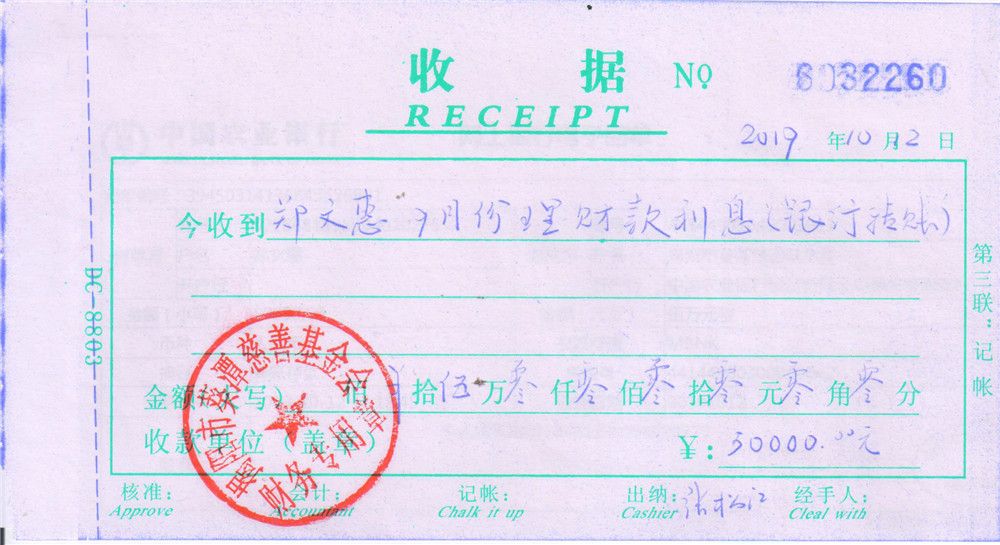 收 据 NO 6032260
RECEIPT
2019 年 10 月 2 日
今收到 郑文惠 9月份理财款利息(银行转账)
金额(大写) 佰 ¥ 拾 伍 万 零 仟 零 佰 零 拾 零 元 零 角 零 分
收款单位(盖章) ¥: 50000.00元
核准: 会计: 记帐: 出纳: 张松江 经手人:
Approve Accountant Chalk it up Cashier Cleal with
第三联:记帐
DC 8803
揭阳市炎潭慈善基金会
财务专用章